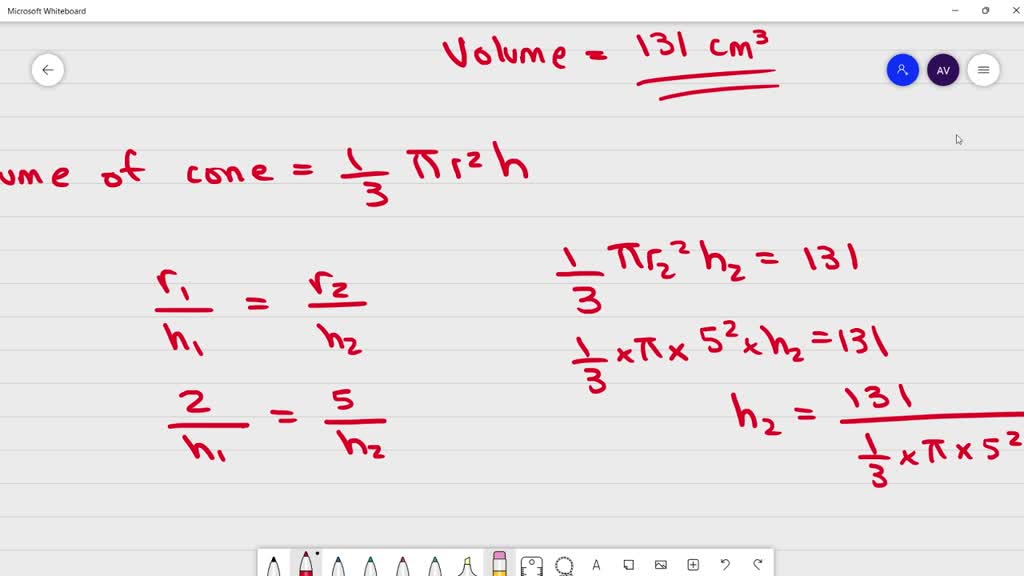 Microsoft Whiteboard
Volume = 131 cm³
AV
ume of cone = 1/3 πr²h
r₁/h₁ = r₂/h₂
2/h₁ = 5/h₂
1/3 πr₂²h₂ = 131
1/3 × π × 5² × h₂ = 131
h₂ = 131/(1/3 × π × 5²
A